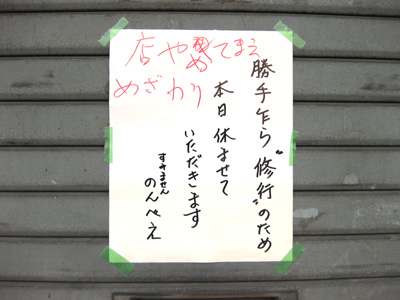 店やめてまえ
めざわり
勝手乍ら"修行"のため
本日休ませて
いただきます
すみません
のんべえ